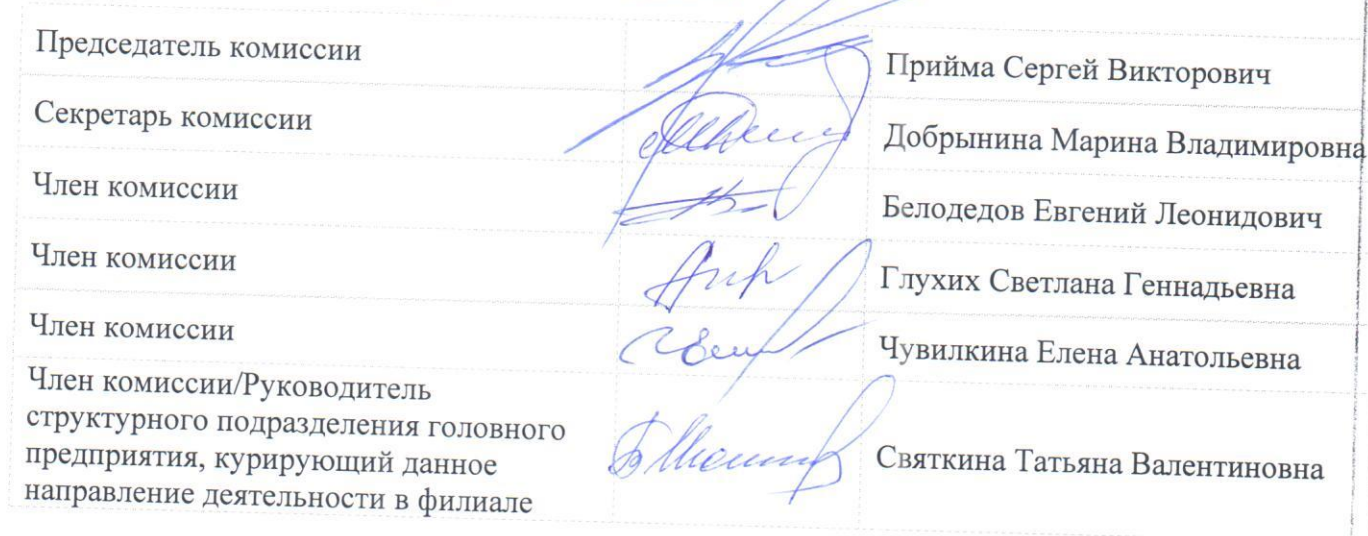 Председатель комиссии Прийма Сергей Викторович
Секретарь комиссии Добрынина Марина Владимировна
Член комиссии Белодедов Евгений Леонидович
Член комиссии Глухих Светлана Геннадьевна
Член комиссии Чувилкина Елена Анатольевна
Член комиссии/Руководитель
структурного подразделения головного
предприятия, курирующий данное
направление деятельности в филиале
Святкина Татьяна Валентиновна